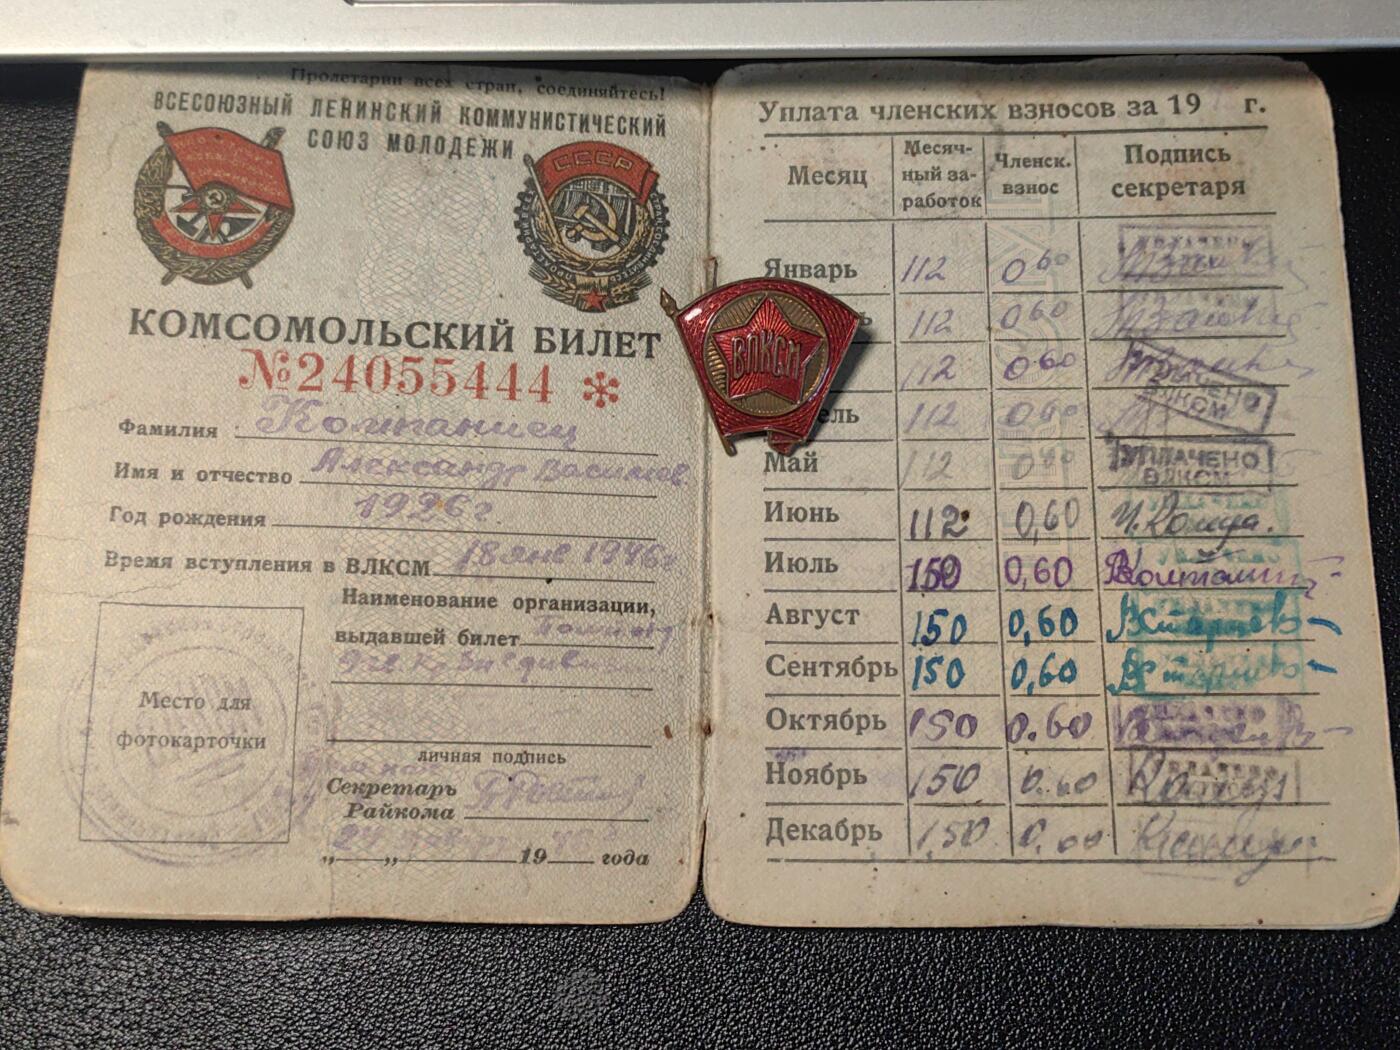 Пролетарии всех стран, соединяйтесь!
ВСЕСОЮЗНЫЙ ЛЕНИНСКИЙ КОММУНИСТИЧЕСКИЙ
СОЮЗ МОЛОДЕЖИ
СССР
КОМСОМОЛЬСКИЙ БИЛЕТ
№24055444 *
Фамилия Компаниец
Имя и отчество Александр Васильев.
Год рождения 1926 г
Время вступления в ВЛКСМ 18 янв 1946 г
Наименование организации,
выдавшей билет
Место для
фотокарточки
личная подпись
Секретарь
Райкома
„ 24 „ 19 46 года
ВЛКСМ
Уплата членских взносов за 19 г.
Месяц Месяч-ный за-работок Членск. взнос Подпись секретаря
Январь 112 0 60
ь 112 0 60
112 0 60
ель 112 0 60 УПЛАЧЕНО ВЛКСМ
Май 112 0 60 УПЛАЧЕНО ВЛКСМ
Июнь 112 0,60
Июль 150 0,60
Август 150 0,60
Сентябрь 150 0,60
Октябрь 150 0.60
Ноябрь 150 0.60
Декабрь 150 0,60